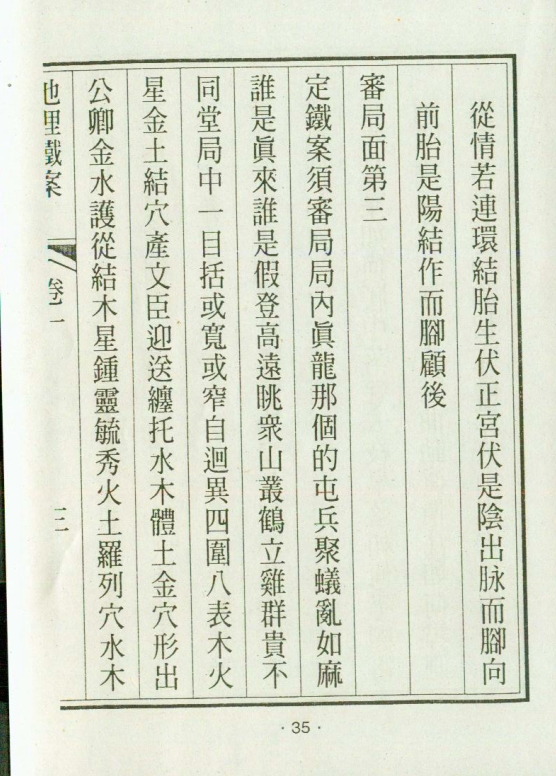 從情若連環結胎生伏正宮伏是陰出脉而腳向
前胎是陽結作而腳顧後
審局面第三
定鐵案須審局局內眞龍那個的屯兵聚蟻亂如麻
誰是眞來誰是假登高遠眺衆山叢鶴立雞群貴不
同堂局中一目括或寬或窄自迴異四圍八表木火
星金土結穴產文臣迎送纏托水木體土金穴形出
公卿金水護從結木星鍾靈毓秀火土羅列穴水木
地理鐵案
卷一
三
·35·